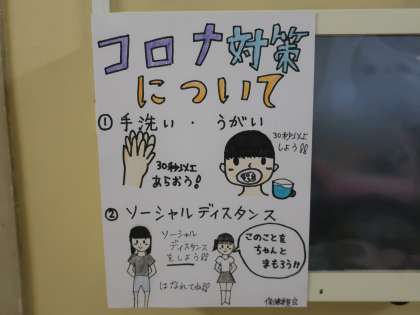 コロナ対策
について
① 手洗い・うがい
30秒以上
あらおう!
30秒以上
しよう!!
② ソーシャルディスタンス
ソーシャル
ディスタンス
をしよう!!
はなれてね!!
このことを
ちゃんと
まもろう!!
保健委員会